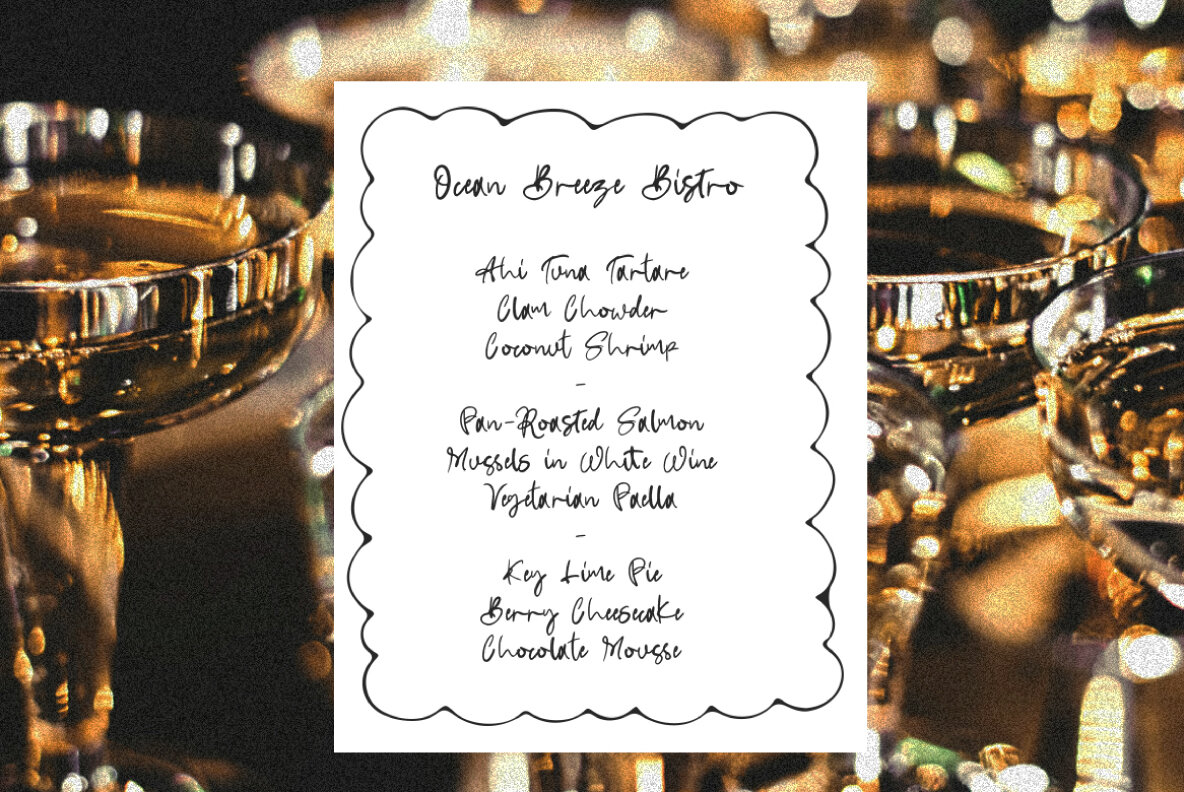 Ocean Breeze Bistro
Ahi Tuna Tartare
Clam Chowder
Coconut Shrimp
-
Pan-Roasted Salmon
Mussels in White Wine
Vegetarian Paella
-
Key Lime Pie
Berry Cheesecake
Chocolate Mousse